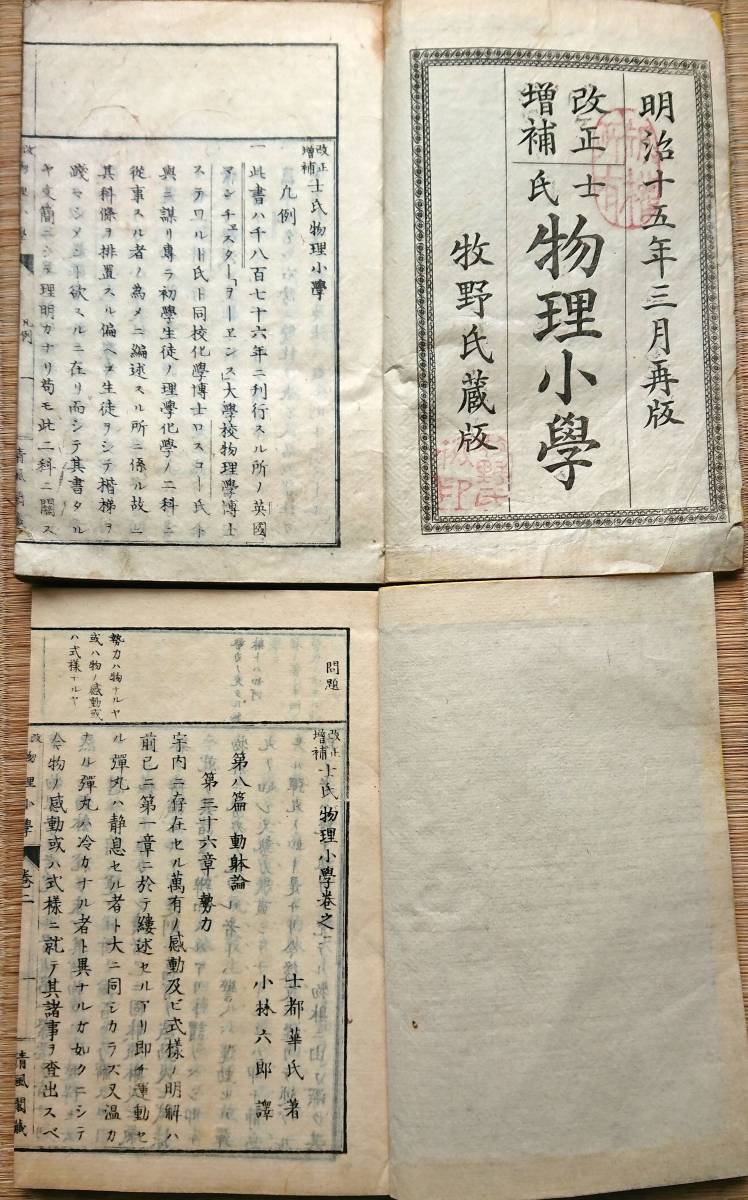 明治十五年三月再版
改正増補
士氏物理小學
牧野氏蔵版
改正増補士氏物理小學
凡例
一此書ハ千八百七十六年ニ刊行スル所ノ英國
マンチェスター「ヲーエンス」大學校物理學博士
ステワルト氏ト同校化學博士ロスコー氏ト
與ニ謀リ專ラ初學生徒ノ理學化學ノ二科ニ
從事スル者ノ為メニ編述スル所ニ係ル故ニ
其科條ヲ排置スル偏ヘニ生徒ヲシテ楷梯ヲ
踐マシメント欲スルニ在リ而シテ其書タル
ヤ文簡ニシテ理明カナリ苟モ此二科ニ關ス
物理小學
凡例
清風閣藏
問題
勢力ハ物ナルヤ
或ハ物ノ感動或
ハ式様ナルヤ
改正増補士氏物理小學卷之二
士都華氏著
小林六郎譯
第八篇 動躰論
第三十六章 勢力
宇内ニ存在セル萬有ノ感動及ビ式様ノ明解ハ
前已ニ第一章ニ於テ縷述セルアリ即チ運動セ
ル彈丸ハ静息セル者ト大ニ同シカラズ又温カ
ナル彈丸ハ冷カナル者ト異ナルガ如クニシテ
今物ノ感動或ハ式様ニ就テ其諸事ヲ査出スベ
物理小學
卷二
清風閣藏